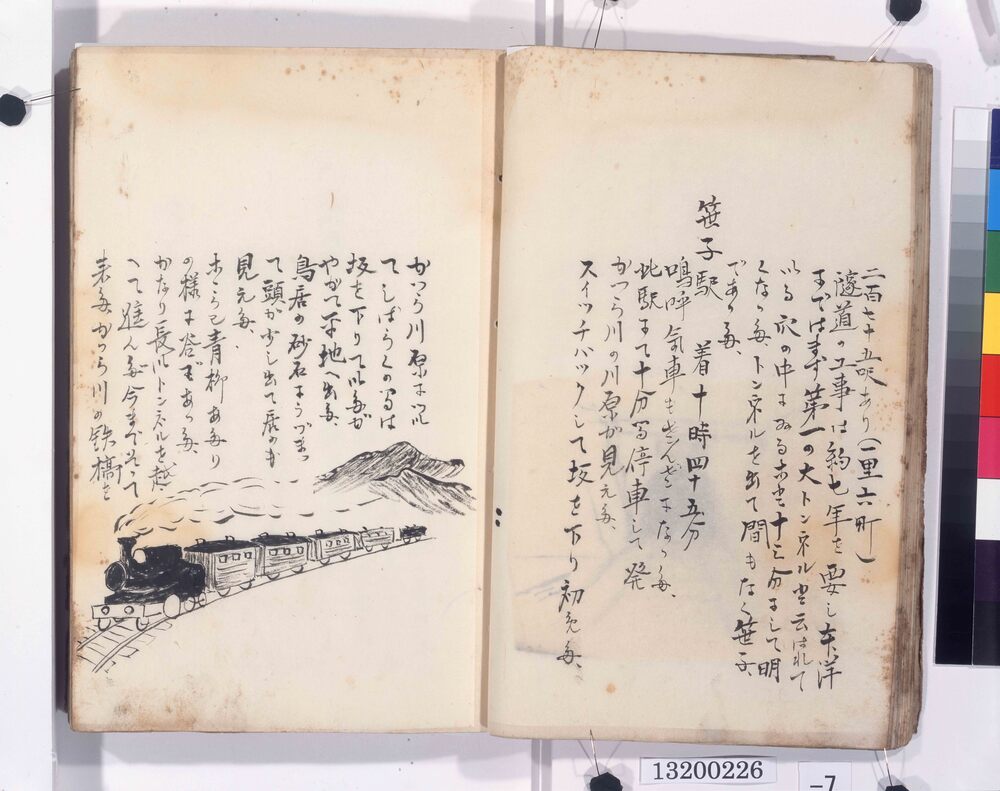 二百七十五呎あり(一里六町)
隧道の工事は約七年を要し東洋
まではまず第一の大トンネルと云はれて
いる 穴の中にゐる事十三分にして明
くなつた、トンネルを出て間もなく笹子
であつた、
笹子駅 着十時四十五分
嗚呼気車も
此駅にて十分間停車して発
かつら川の川原が見えた、
スイッチバックして坂を下り初めた、
かつら川原に沿
てしばらくの間は
坂を下りて
やがて平地へ出た、
鳥居の砂石にうづまつ
て頭が少し出て居のが
見えた、
青柳あたり
の様に谷であつた、
かなり長いトンネルを越
へて進んだ今まで
来たかつら川の鉄橋を
13200226
-7